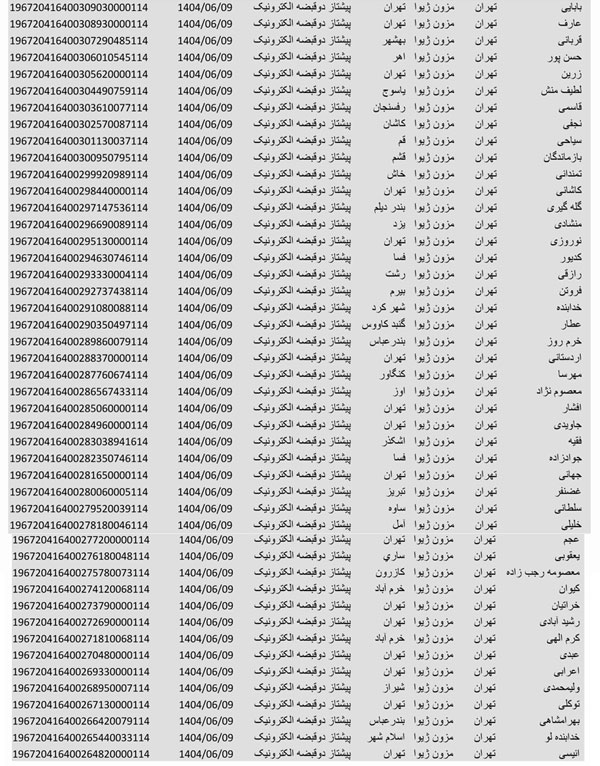 بابایی تهران مزون ژیوا تهران پیشتاز دوقبضه الکترونیک 1404/06/09 196720416400309030000114
عارف تهران مزون ژیوا تهران پیشتاز دوقبضه الکترونیک 1404/06/09 196720416400308930000114
قربانی تهران مزون ژیوا بهشهر پیشتاز دوقبضه الکترونیک 1404/06/09 196720416400307290485114
حسن پور تهران مزون ژیوا اهر پیشتاز دوقبضه الکترونیک 1404/06/09 196720416400306010545114
زرین تهران مزون ژیوا تهران پیشتاز دوقبضه الکترونیک 1404/06/09 196720416400305620000114
لطیف منش تهران مزون ژیوا یاسوج پیشتاز دوقبضه الکترونیک 1404/06/09 196720416400304490759114
قاسمی تهران مزون ژیوا رفسنجان پیشتاز دوقبضه الکترونیک 1404/06/09 196720416400303610077114
نجفی تهران مزون ژیوا کاشان پیشتاز دوقبضه الکترونیک 1404/06/09 196720416400302570087114
سیاحی تهران مزون ژیوا قم پیشتاز دوقبضه الکترونیک 1404/06/09 196720416400301130037114
بازماندگان تهران مزون ژیوا قشم پیشتاز دوقبضه الکترونیک 1404/06/09 196720416400300950795114
تمندانی تهران مزون ژیوا خاش پیشتاز دوقبضه الکترونیک 1404/06/09 196720416400299920989114
کاشانی تهران مزون ژیوا تهران پیشتاز دوقبضه الکترونیک 1404/06/09 196720416400298440000114
گله گیری تهران مزون ژیوا بندر دیلم پیشتاز دوقبضه الکترونیک 1404/06/09 196720416400297147536114
منشادی تهران مزون ژیوا یزد پیشتاز دوقبضه الکترونیک 1404/06/09 196720416400296690089114
نوروزی تهران مزون ژیوا تهران پیشتاز دوقبضه الکترونیک 1404/06/09 196720416400295130000114
کدیور تهران مزون ژیوا فسا پیشتاز دوقبضه الکترونیک 1404/06/09 196720416400294630746114
رازقی تهران مزون ژیوا رشت پیشتاز دوقبضه الکترونیک 1404/06/09 196720416400293330004114
فروتن تهران مزون ژیوا بیرم پیشتاز دوقبضه الکترونیک 1404/06/09 196720416400292737438114
خدابنده تهران مزون ژیوا شهر کرد پیشتاز دوقبضه الکترونیک 1404/06/09 196720416400291080088114
عطار تهران مزون ژیوا گنبد کاووس پیشتاز دوقبضه الکترونیک 1404/06/09 196720416400290350497114
خرم روز تهران مزون ژیوا بندرعباس پیشتاز دوقبضه الکترونیک 1404/06/09 196720416400289860079114
اردستانی تهران مزون ژیوا تهران پیشتاز دوقبضه الکترونیک 1404/06/09 196720416400288370000114
مهرسا تهران مزون ژیوا کنگاور پیشتاز دوقبضه الکترونیک 1404/06/09 196720416400287760674114
معصوم نژاد تهران مزون ژیوا اوز پیشتاز دوقبضه الکترونیک 1404/06/09 196720416400286567433114
افشار تهران مزون ژیوا تهران پیشتاز دوقبضه الکترونیک 1404/06/09 196720416400285060000114
جاویدی تهران مزون ژیوا تهران پیشتاز دوقبضه الکترونیک 1404/06/09 196720416400284960000114
فقیه تهران مزون ژیوا اشکذر پیشتاز دوقبضه الکترونیک 1404/06/09 196720416400283038941614
جوادزاده تهران مزون ژیوا فسا پیشتاز دوقبضه الکترونیک 1404/06/09 196720416400282350746114
جهانی تهران مزون ژیوا تهران پیشتاز دوقبضه الکترونیک 1404/06/09 196720416400281650000114
غضنفر تهران مزون ژیوا تبریز پیشتاز دوقبضه الکترونیک 1404/06/09 196720416400280060005114
سلطانی تهران مزون ژیوا ساوه پیشتاز دوقبضه الکترونیک 1404/06/09 196720416400279520039114
خلیلی تهران مزون ژیوا آمل پیشتاز دوقبضه الکترونیک 1404/06/09 196720416400278180046114
عجم تهران مزون ژیوا تهران پیشتاز دوقبضه الکترونیک 1404/06/09 196720416400277200000114
یعقوبی تهران مزون ژیوا ساري پیشتاز دوقبضه الکترونیک 1404/06/09 196720416400276180048114
معصومه رجب زاده تهران مزون ژیوا کازرون پیشتاز دوقبضه الکترونیک 1404/06/09 196720416400275780073114
کیوان تهران مزون ژیوا خرم آباد پیشتاز دوقبضه الکترونیک 1404/06/09 196720416400274120068114
خراتیان تهران مزون ژیوا تهران پیشتاز دوقبضه الکترونیک 1404/06/09 196720416400273790000114
رشید آبادی تهران مزون ژیوا تهران پیشتاز دوقبضه الکترونیک 1404/06/09 196720416400272690000114
کرم الهی تهران مزون ژیوا خرم آباد پیشتاز دوقبضه الکترونیک 1404/06/09 196720416400271810068114
عبدی تهران مزون ژیوا تهران پیشتاز دوقبضه الکترونیک 1404/06/09 196720416400270480000114
اعرابی تهران مزون ژیوا تهران پیشتاز دوقبضه الکترونیک 1404/06/09 196720416400269330000114
ولیمحمدی تهران مزون ژیوا شیراز پیشتاز دوقبضه الکترونیک 1404/06/09 196720416400268950007114
توکلی تهران مزون ژیوا تهران پیشتاز دوقبضه الکترونیک 1404/06/09 196720416400267130000114
بهرامشاهی تهران مزون ژیوا بندرعباس پیشتاز دوقبضه الکترونیک 1404/06/09 196720416400266420079114
خدابنده لو تهران مزون ژیوا اسلام شهر پیشتاز دوقبضه الکترونیک 1404/06/09 196720416400265440033114
انیسی تهران مزون ژیوا تهران پیشتاز دوقبضه الکترونیک 1404/06/09 196720416400264820000114